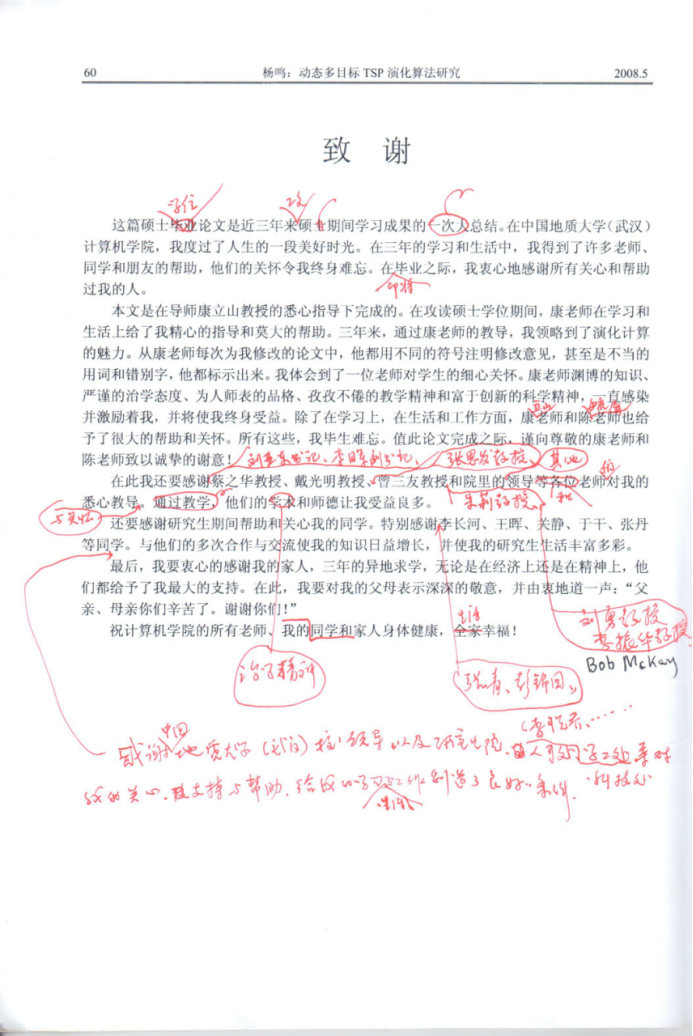 60 杨鸣：动态多目标 TSP 演化算法研究 2008.5
致 谢
学位 攻
这篇硕士毕业论文是近三年来硕士期间学习成果的一次大总结。在中国地质大学（武汉）
计算机学院，我度过了人生的一段美好时光。在三年的学习和生活中，我得到了许多老师、
同学和朋友的帮助，他们的关怀令我终身难忘。在毕业之际，我衷心地感谢所有关心和帮助
过我的人。
即将
本文是在导师康立山教授的悉心指导下完成的。在攻读硕士学位期间，康老师在学习和
生活上给了我精心的指导和莫大的帮助。三年来，通过康老师的教导，我领略到了演化计算
的魅力。从康老师每次为我修改的论文中，他都用不同的符号注明修改意见，甚至是不当的
用词和错别字，他都标示出来。我体会到了一位老师对学生的细心关怀。康老师渊博的知识、
严谨的治学态度、为人师表的品格、孜孜不倦的教学精神和富于创新的科学精神，一直感染
并激励着我，并将使我终身受益。除了在学习上，在生活和工作方面，康老师和陈老师也给
予了很大的帮助和关怀。所有这些，我毕生难忘。值此论文完成之际，谨向尊敬的康老师和
陈老师致以诚挚的谢意！
张思发教授、 其他
在此我还要感谢蔡之华教授、戴光明教授、曾三友教授和院里的领导等各位老师对我的
悉心教导。通过教学，他们的学术和师德让我受益良多。
与关怀
还要感谢研究生期间帮助和关心我的同学。特别感谢李长河、王晖、关静、于干、张丹
等同学。与他们的多次合作与交流使我的知识日益增长，并使我的研究生生活丰富多彩。
最后，我要衷心的感谢我的家人，三年的异地求学，无论是在经济上还是在精神上，他
们都给予了我最大的支持。在此，我要对我的父母表示深深的敬意，并由衷地道一声：“父
亲、母亲你们辛苦了。谢谢你们！”
祝计算机学院的所有老师、我的同学和家人身体健康，全家幸福！
生活
刘勇教授
李振华教授
Bob McKay
治学精神
彭锦国
中国
感谢地质大学（武汉）校领导以及研究生院、
的关心、支持与帮助，给我的学习工作创造了良好条件。